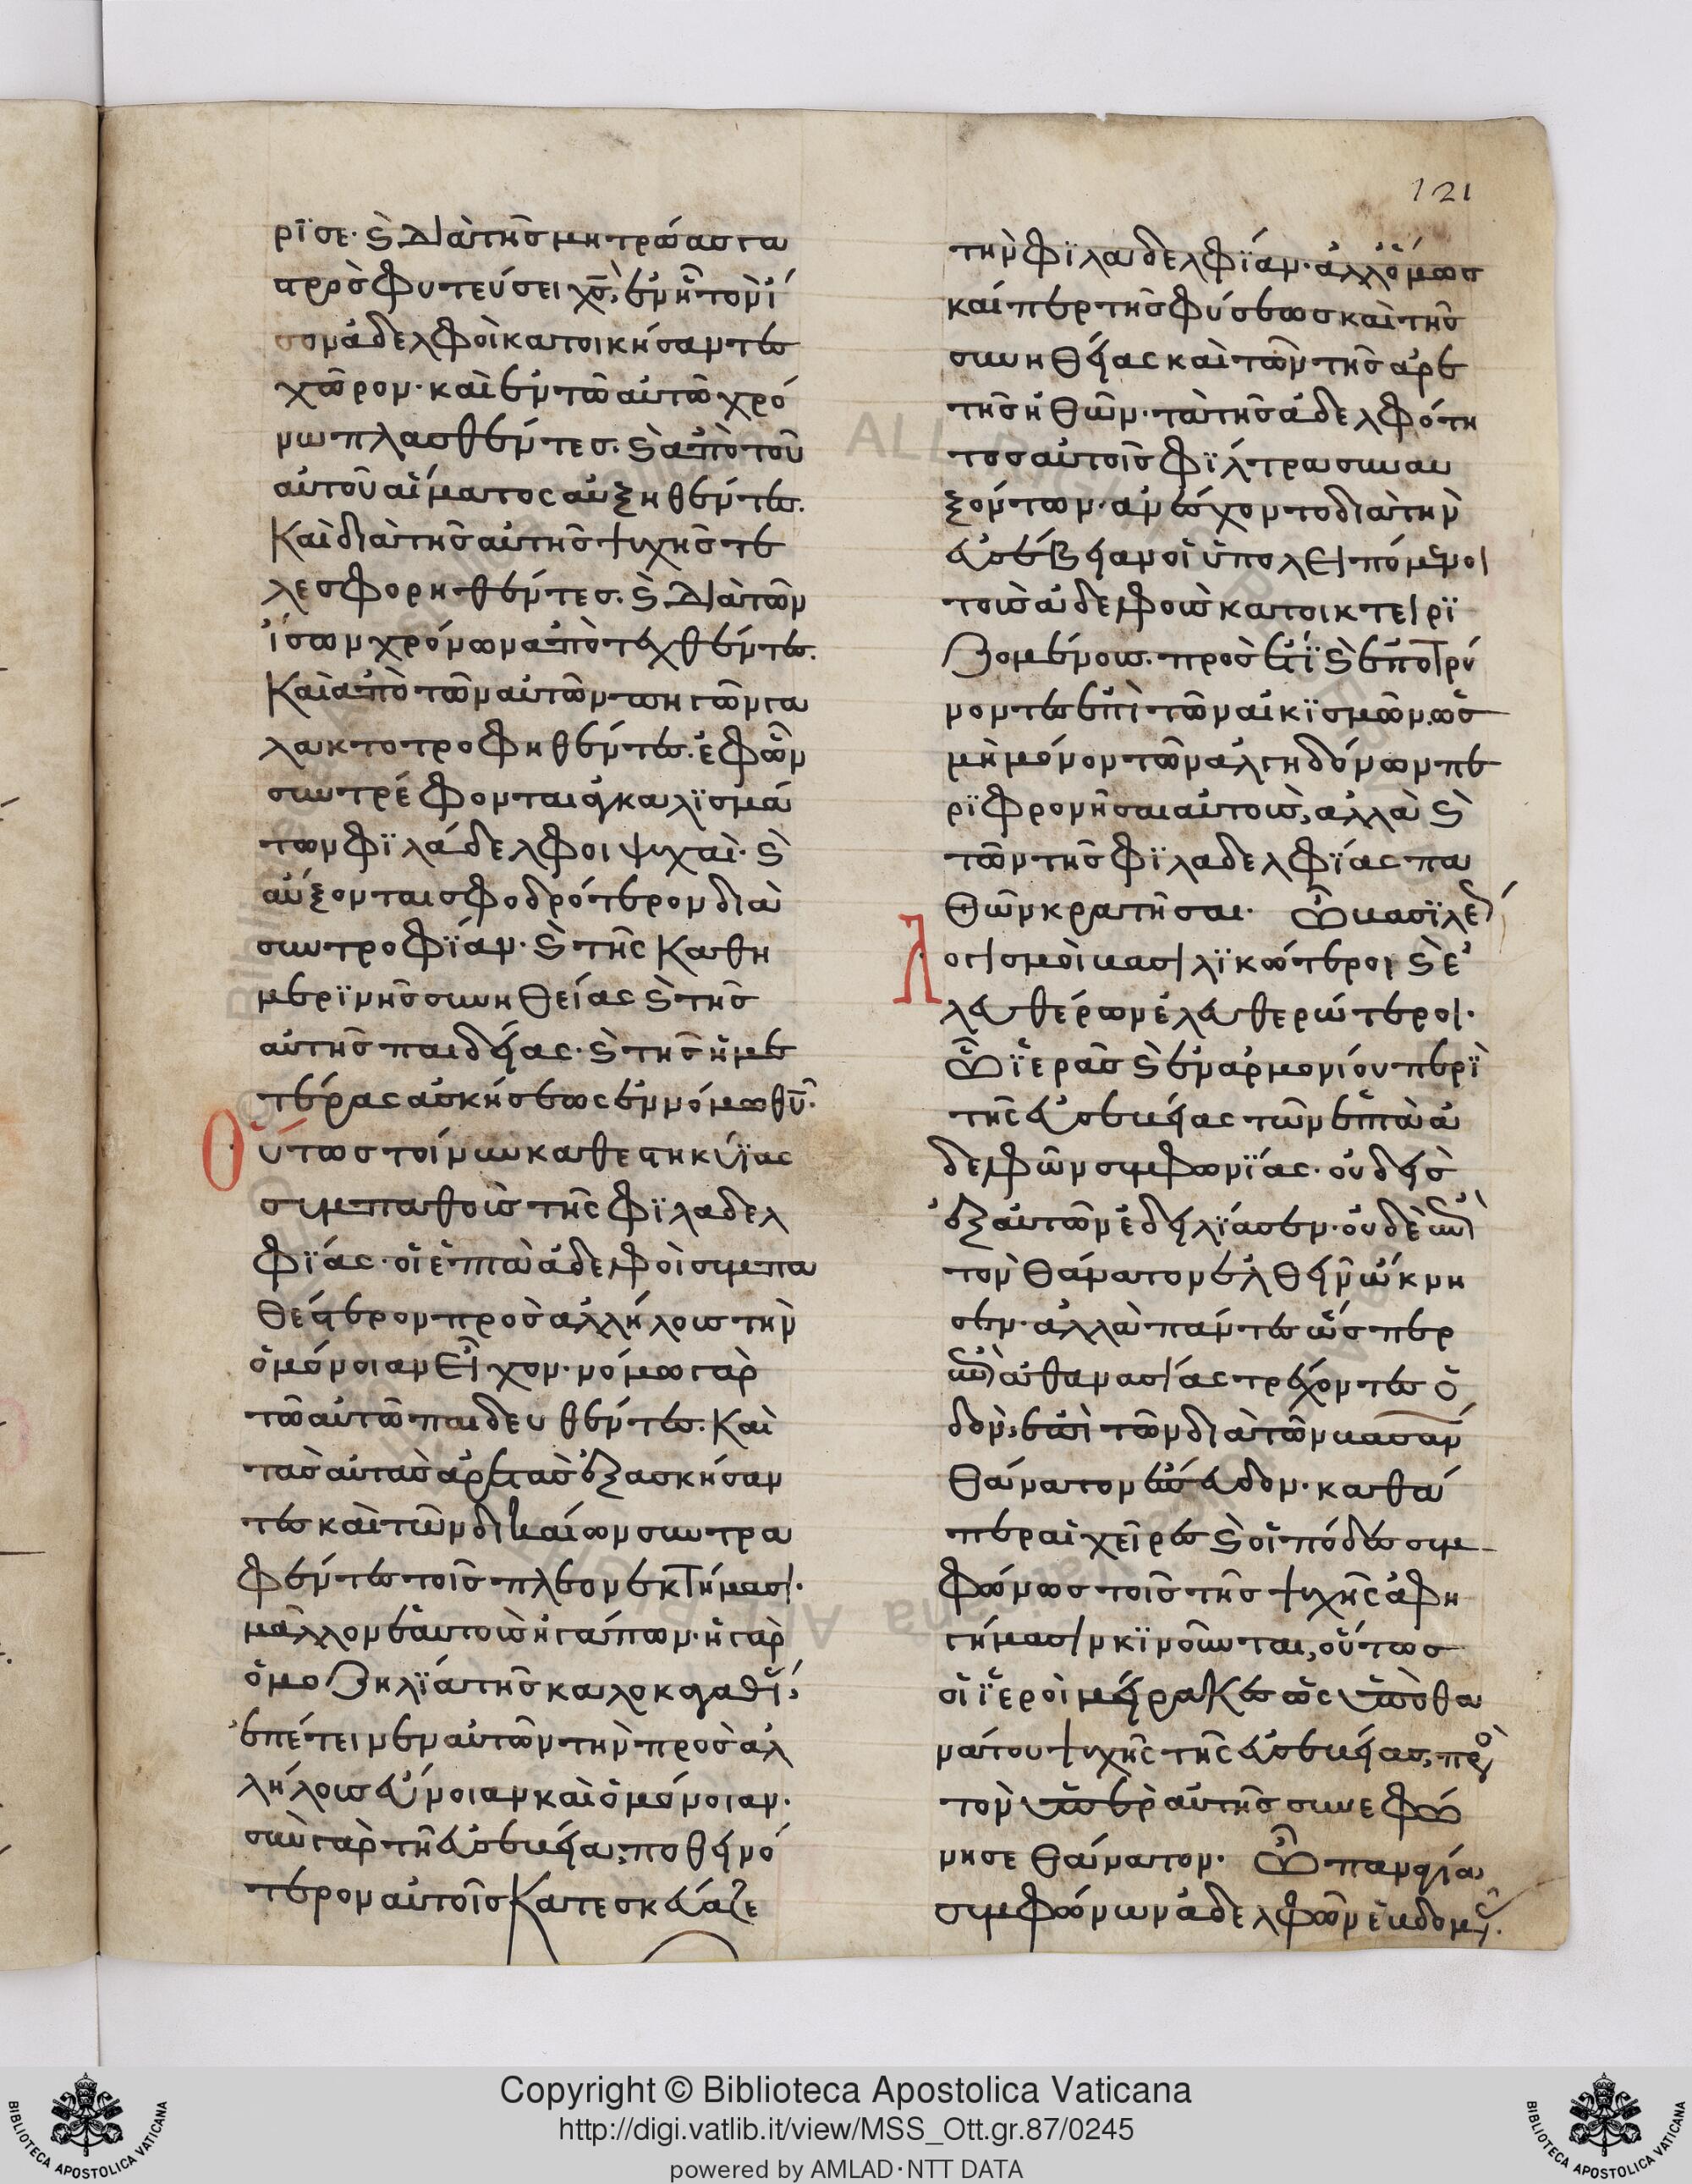 121
ρϊσε· ϗ διὰ τῆς μητρώας γα
στρὸς φυτεύσει χσ̅, ἐν ᾗ τὸν ἴ
σον ἀδελφοὶ κατοικήσαντες
χρόνον· καὶ ἐν τῶ αὐτῶ χρό
νω πλασθέντες· ϗ ἀπὸ τοῦ
αὐτοῦ αἵματος αὐξηθέντες.
Καὶ διὰ τῆς αὐτῆς ψυχῆς τε
λεσφορηθέντες· ϗ διὰ τῶν
ἴσων χρόνων ἀποτεχθέντες.
Καὶ ἀπὸ τῶν αὐτῶν πηγῶν γα
λακτοτροφηθέντες· ἐφ ὧν
συντρέφονται ἀγκαλϊσμά
των φϊλάδελφοι ψυχαὶ· ϗ
αὔξονται σφοδρότερον διὰ
συντροφϊαν· ϗ τῆς καθη
μερϊνῆς συνηθείας ϗ τῆς
αὐτῆς παιδείας· ϗ τῆς ἡμε
τέρας ἀσκήσεως ἐν νόμω θυ̅·
Οὕτως τοίνυν καθεστηκυίας
συμπαθοῦς τῆς φϊλαδελ
φϊας· οἱ ἑπτὰ ἀδελφοὶ συμπα
θέστερον πρὸς ἀλλήλους τὴν
ὁμόνοιαν εἶχον· νόμω γὰρ
τῶ αὐτῶ παιδευθέντες. Καὶ
τὰς αὐτὰς ἀρετὰς ἐξασκήσαν
τες καὶ τῶν δικαίων συντρα
φέντες τοῖς πλέον ἐκτήμασι·
μᾶλλον ἑαυτοὺς ἠγάπων· ἡ γὰρ
ὁμοζηλϊα τῆς καλοκαγαθΐ,
ἐπέτεινεν αὐτῶν τὴν πρὸς ἀλ
λήλους εὔνοιαν καὶ ὁμόνοιαν·
σὺν γὰρ τῆ εὐσεβεία, ποθεινό
τερον αὐτοῖς κατεσκεύαζε
τὴν φϊλαδελφϊαν· ἀλλ ὅμως
καίπερ τῆς φύσεως καὶ τῆς
συνηθείας καὶ τῶν τῆς ἀρε
τῆς ἠθῶν· τὰ τῆς ἀδελφότη
τος αὐτοῖς φϊλτρα συναυ
ξόντων· ἀνέσχοντο διὰ τὴν
εὐσέβειαν οἱ ὑπολειπόμενοι
τοὺς ἀδελφοὺς κατοικτειρϊ
ζομένους· πρὸς ἔτϊ ϗ ἐποτρύ
νοντες ἐπὶ τῶν αἰκϊσμῶν, ὡς
μὴ μόνον τῶν ἀλγηδόνων πε
ρϊφρονῆσαι αὐτοὺς, ἀλλὰ ϗ
τῶν τῆς φϊλαδελφϊας πα
θῶν κρατῆσαι· Ὦ βασϊλέ
Λογισμοὶ βασιλϊκώτεροι ϗ ἐ
λευθέρων ἐλευθερώτεροι·
Ὦ ϊερᾶς ϗ ἐναρμονίου περϊ
τῆς εὐσεβείας τῶν ἑπτὰ ἀ
δελφῶν συμφωνϊας· οὐδεὶς
ἐξ αὐτῶν ἐδειλϊασεν· οὐδὲ ἐπὶ
τὸν θάνατον ἐλθεῖν ὤκνη
σεν· ἀλλὰ πάντες ὥσπερ
ἐπ ἀθανασίας τρέχοντες ὁ
δὸν, ἐπὶ τῶν διὰ τῶν βασάν
θάνατον ἔσπευδον· καθά
περ αἱ χεῖρες ϗ οἱ πόδες συμ
φώνως τοῖς τῆς ψυχῆς ἀφη
γήμασιν κϊνοῦνται, οὕτως
οἱ ϊεροὶ μείρακες ὡς ὑπὸ θα
νάτου ψυχῆς τῆς εὐσεβείας, πρὸ
τὸν ὑπὲρ αὐτῆς συνεφώ
νησε θάνατον· Ὦ παναγία
συμφώνων ἀδελφῶν ἑβδομὰ.
Copyright © Biblioteca Apostolica Vaticana
http://digi.vatlib.it/view/MSS_Ott.gr.87/0245
powered by AMLAD·NTT DATA
BIBLIOTECA APOSTOLICA VATICANA
BIBLIOTECA APOSTOLICA VATICANA